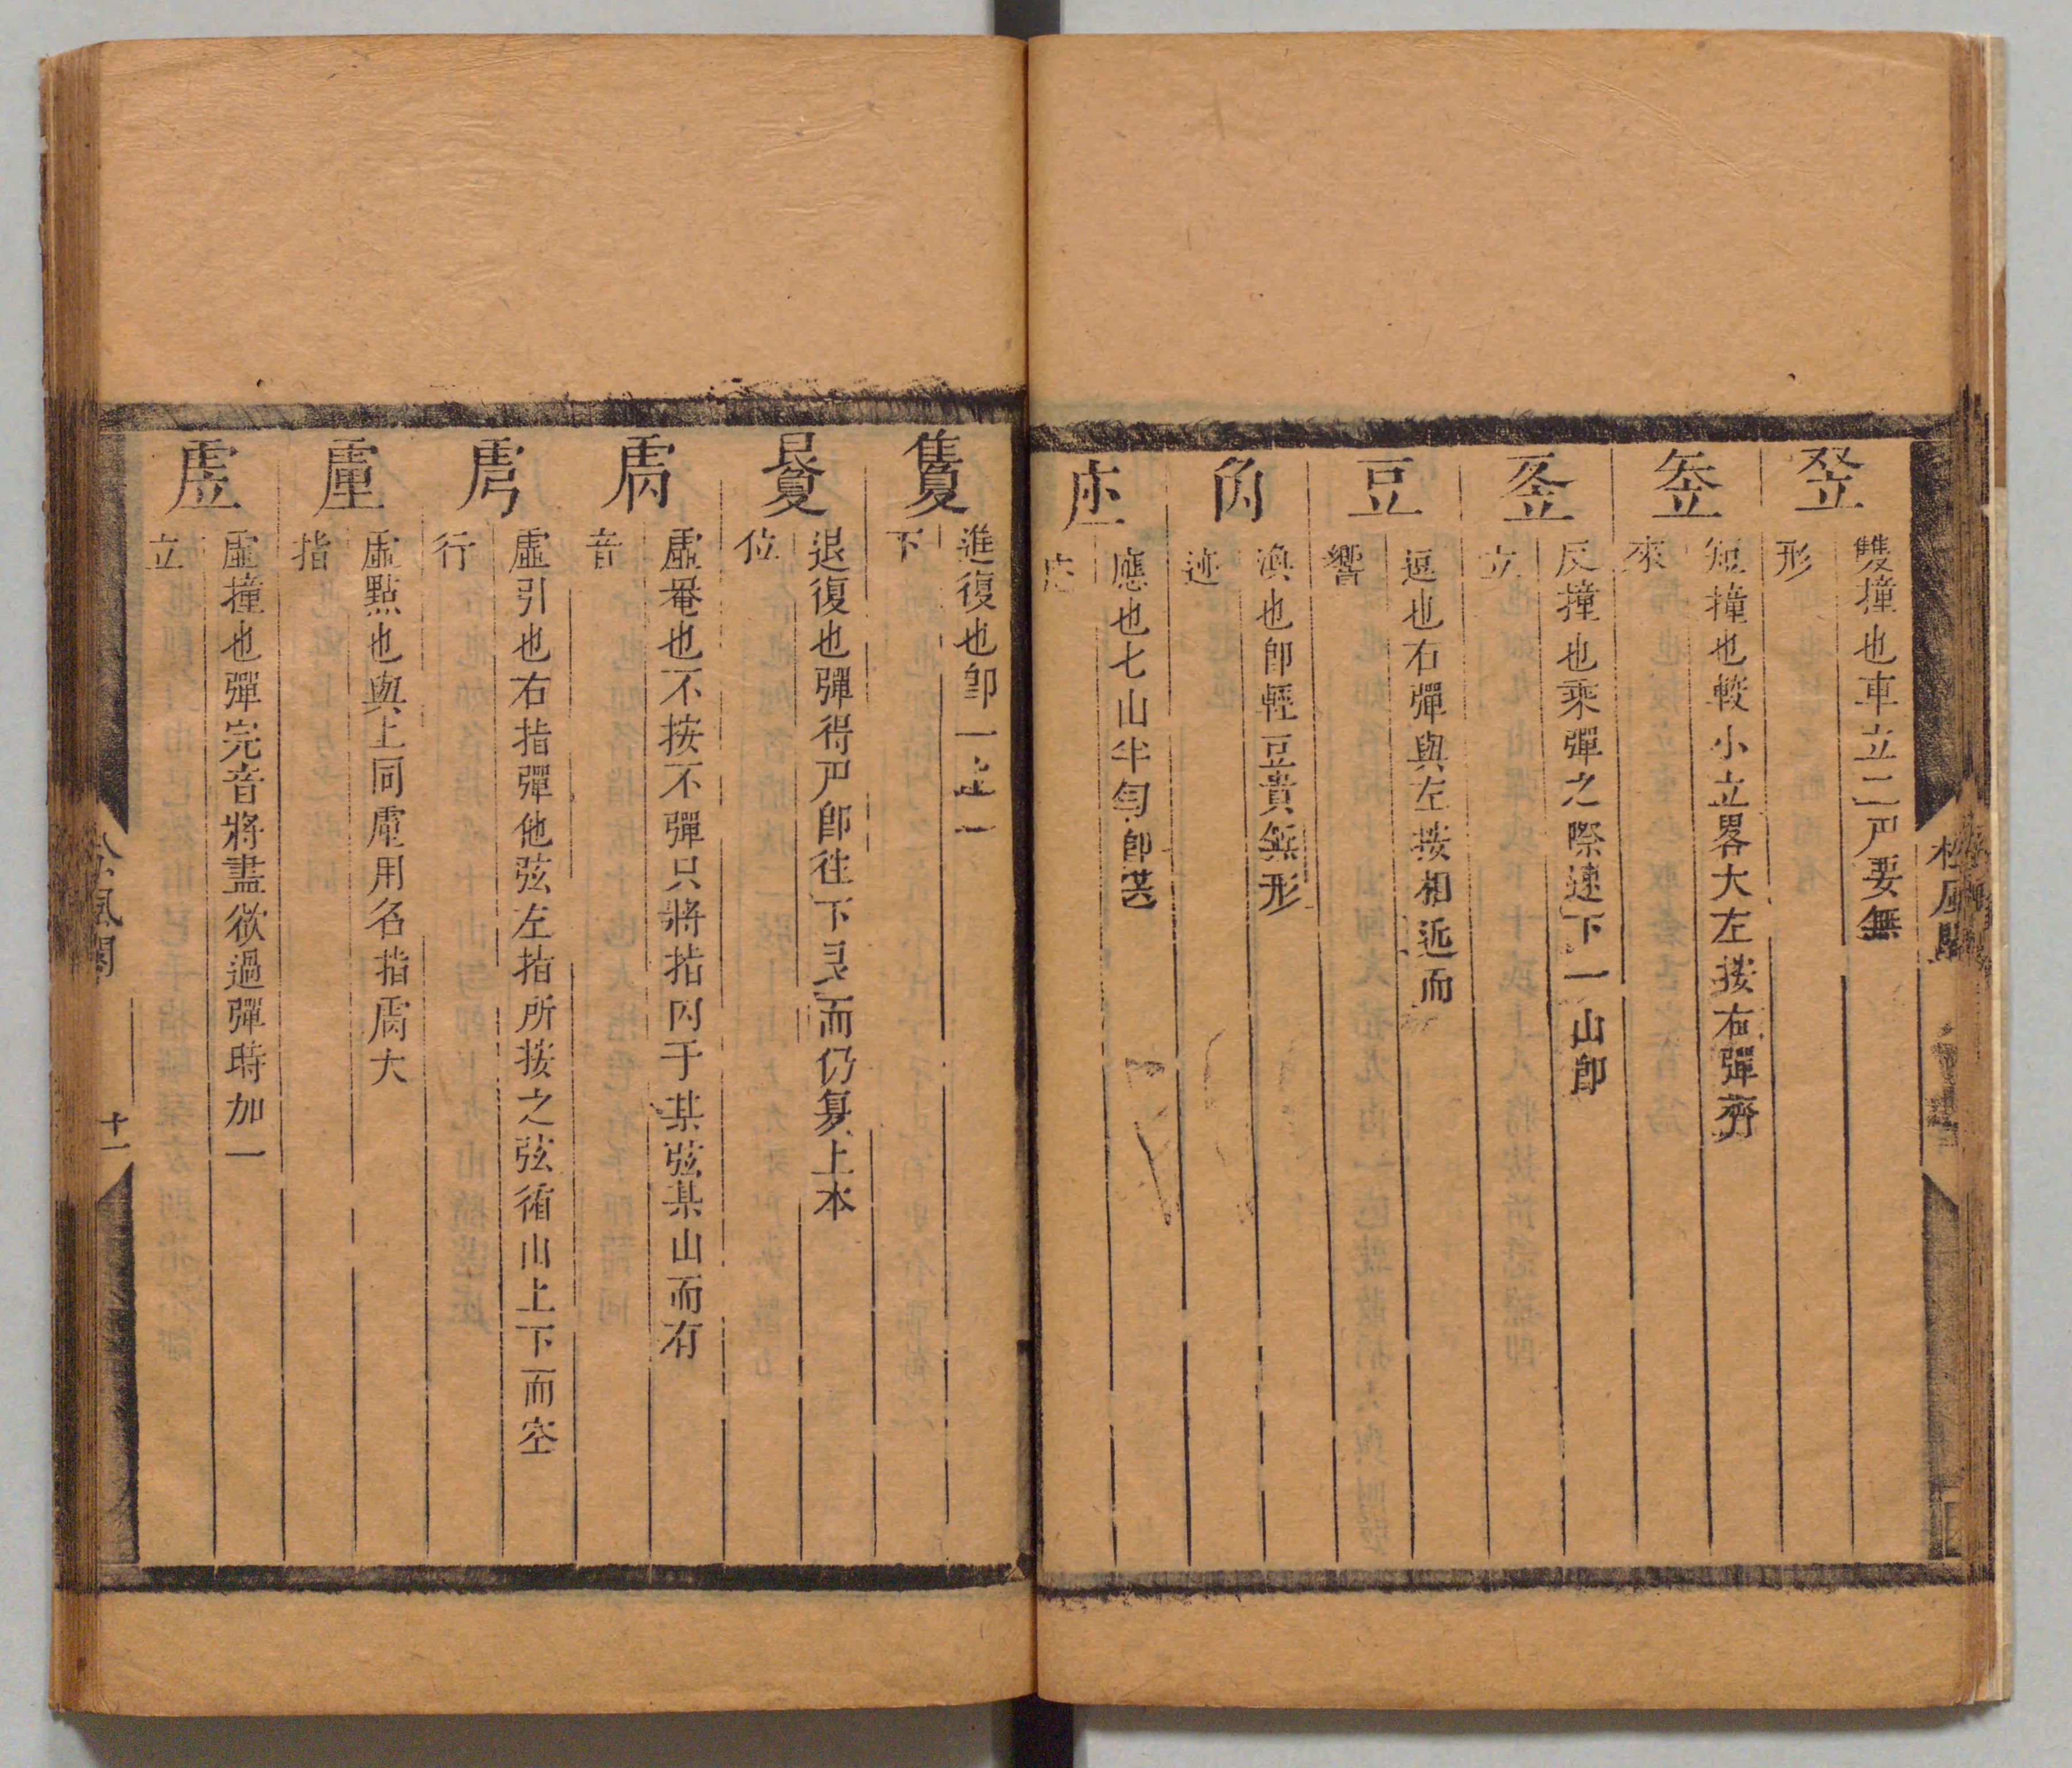 雙撞也車立二尸要無
形
短撞也較小立畧大左按右彈齊
來
反撞也乘彈之際速下一山卽
立
豆
逗也右彈與左按相近而
響
渙也卽輕豆貴無形
迹
應也七山半勻卽
進復也卽一上一
下
退復也彈得尸卽往下艮而仍复上本
位
虛罨也不按不彈只將指于某弦某山而有
音
虛引也右指彈他弦左指所按之弦循山上下而空
行
虛點也與上同用名指大
指
虛撞也彈完音將盡欲過彈時加一
立
松風閣
十一